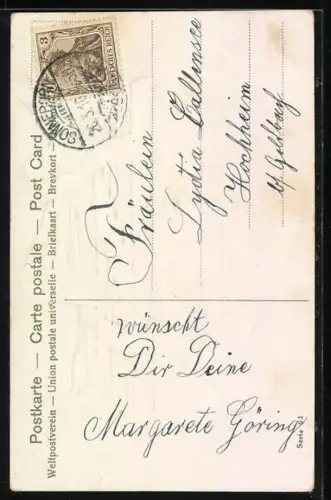 Postkarte — Carte postale — Post Card
Weltpostverein — Union postale universelle — Briefkaart — Brevkort
3
DEUTSCHES REICH
Fräulein
Lydia
Hochheim
wünscht
Dir Deine
Margarete Göring
Serie